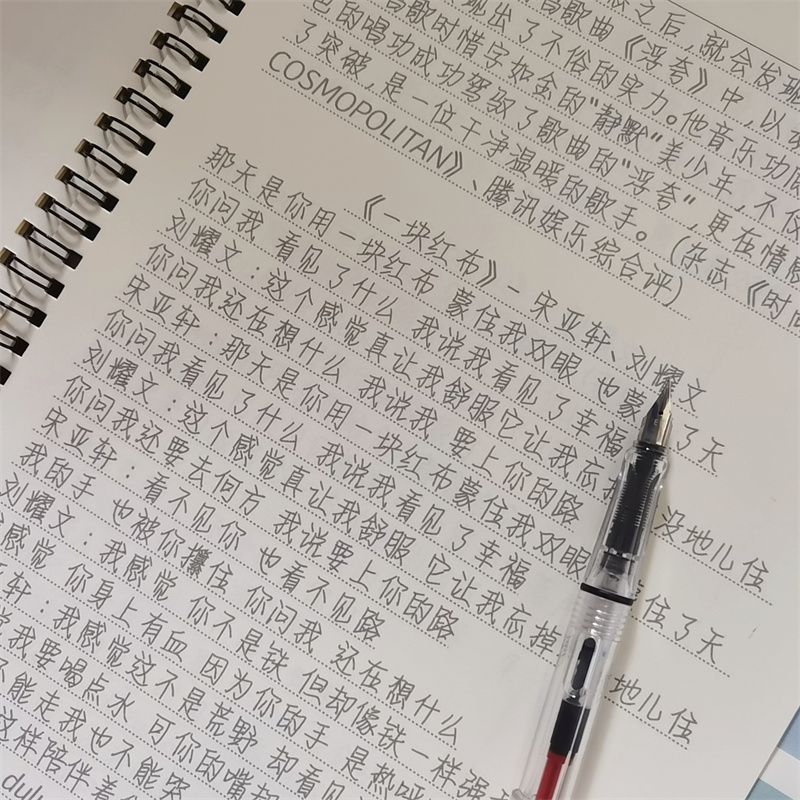 之后,就会发现
歌曲《浮夸》中,以
现出了不俗的实力。他音乐功
唱歌时惜字如金的"静默"美少年,不仅
色的唱功成功驾驭了歌曲的"浮夸",更在情感
了突破,是一位干净温暖的歌手。(杂志《时尚
COSMOPOLITAN》、腾讯娱乐综合评)
《一块红布》- 宋亚轩、刘耀文
那天是你用一块红布 蒙住我双眼 也蒙 了天
你问我 看见了什么 我说我看见了幸福
刘耀文:这个感觉真让我舒服它让我忘 没地儿住
你问我还在想什么 我说我 要上你的路
宋亚轩:那天是你用一块红布蒙住我双眼 住了天
你问我看见了什么 我说我看见了幸福
刘耀文:这个感觉真让我舒服 它让我忘掉 地儿住
你问我还要去何方 我说要上你的路
宋亚轩:看不见你 也看不见路
我的手 也被你攥住 你问我 还在想什么
刘耀文:我感觉 你不是铁 但却像铁一样强
感觉 你身上有血 因为你的手 是热
轩:我感觉这不是荒野 却看见
我要喝点水 可你的嘴
不能走我也不能哭
这样陪伴着
dulu